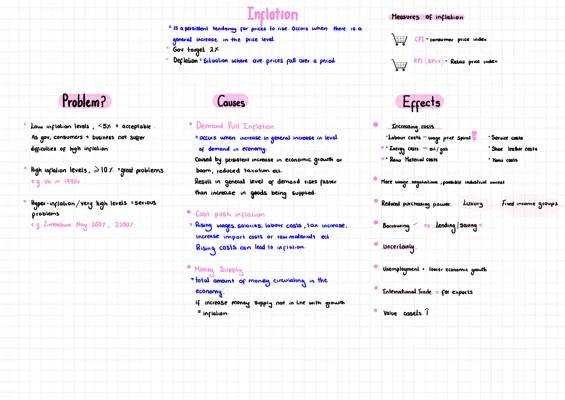 Inflation
* Is a persistent tendency for prices to rise. Occurs when there is a
general increase in the price level.
* Gov target 2%
* Deflation = Situation where ave prices fall over a period.
Measures of inflation
CPI = consumer price index
RPI (RPIX) = Retail price index
Problem?
* Low inflation levels, <5% = acceptable
As gov, consumers + business not suffer
difficulties of high inflation
* High inflation levels, ≥10% = great problems
e.g. Uk in 1990s
* Hyper-inflation/very high levels = serious
problems
e.g Zimbabwe May 2007, 2200%
Causes
* Demand Pull Inflation
* occurs when increase in general increase in level
of demand in economy.
Caused by persistent increase in economic growth or
boom, reduced taxation ect.
Result in general level of demand rises faster
than increase in goods being supplied.
* Cost push inflation
* Rising wages, salaries, labour costs, tax increase,
increase import costs or raw materials ect.
Rising costs can lead to inflation.
* Money Supply
* total amount of money circulating in the
economy.
If increase money supply not in line with growth
= inflation.
Effects
* Increasing costs
* Labour costs - wage price spiral * Service costs
* Energy costs - oil/gas * Shoe leather costs
* Raw Material costs * Menu costs
* More wage negotiations, possible industrial unrest
* Reduced purchasing power Luxury Fixed income groups
* Borrowing ✓ no lending/saving ×
* Uncertainty
* Unemployment = lower economic growth
* International Trade = for exports
* Value assets ↑